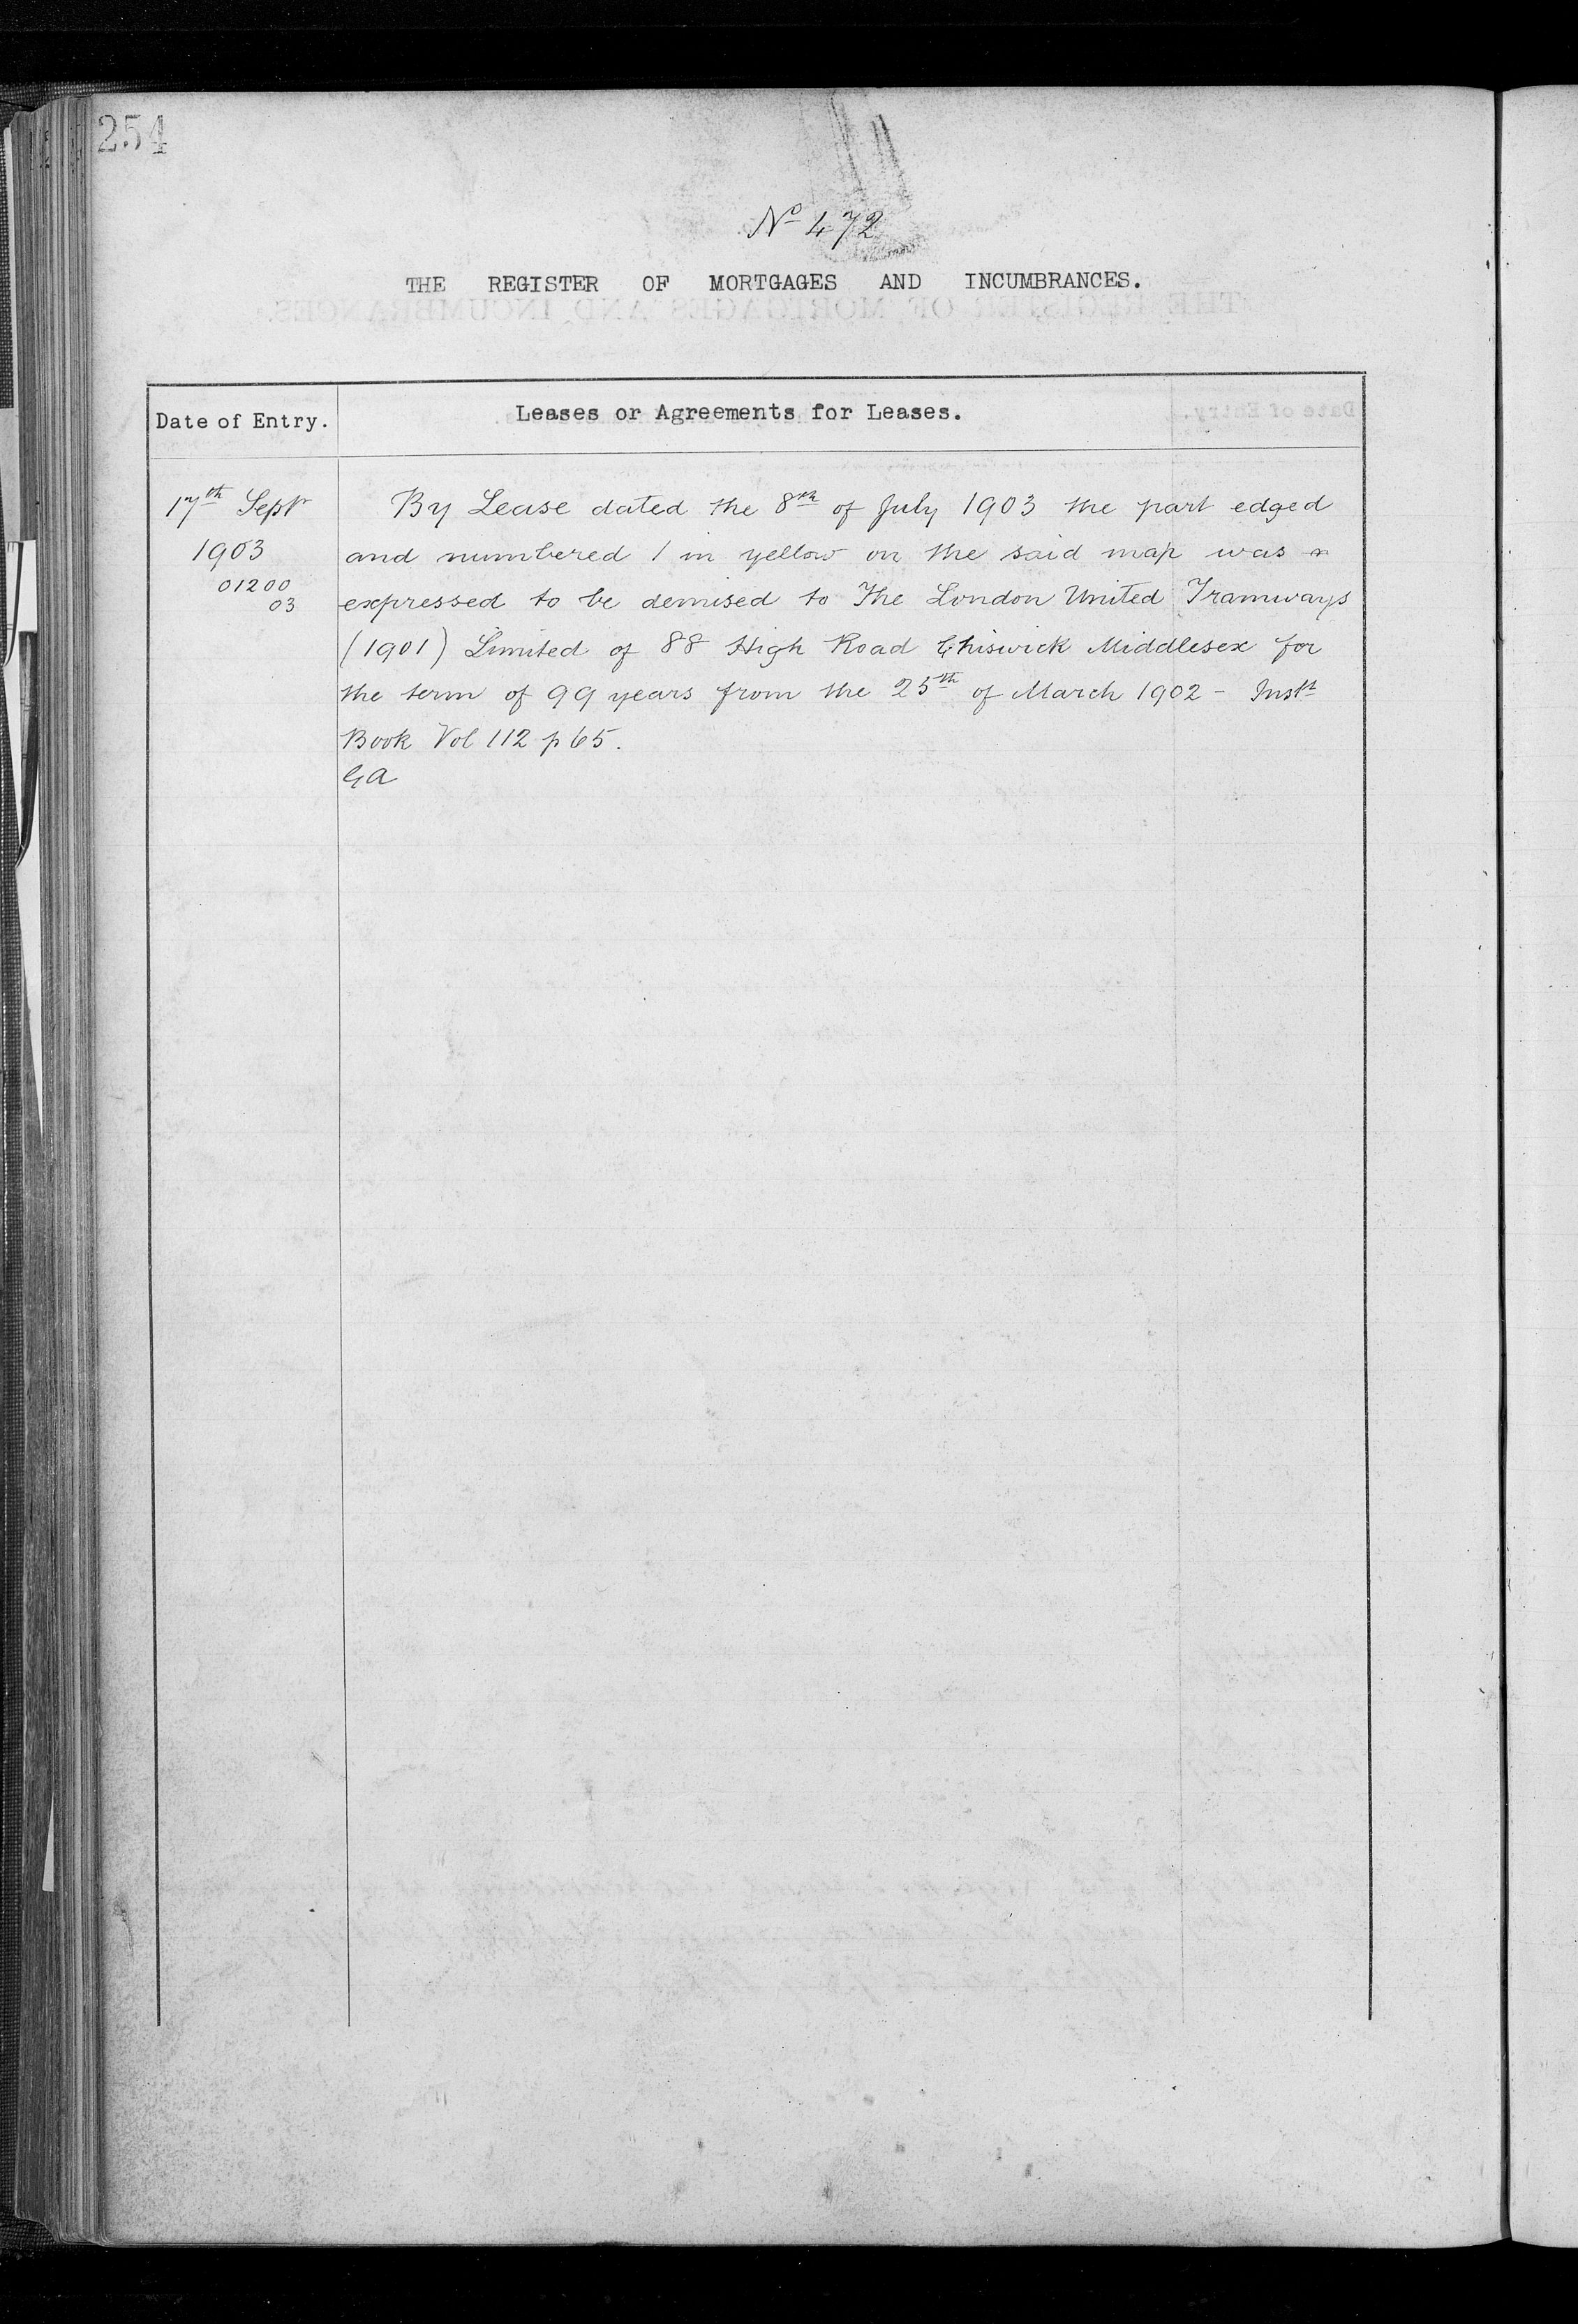 254
No 472
THE REGISTER OF MORTGAGES AND INCUMBRANCES.
Date of Entry.
Leases or Agreements for Leases.
17th Sept
1903
01200
03
By Lease dated the 8th of July 1903 the part edged
and numbered 1 in yellow on the said map was
expressed to be demised to The London United Tramways
(1901) Limited of 88 High Road Chiswick Middlesex for
the term of 99 years from the 25th of March 1902 - Inst
Book Vol 112 p 65.
GA